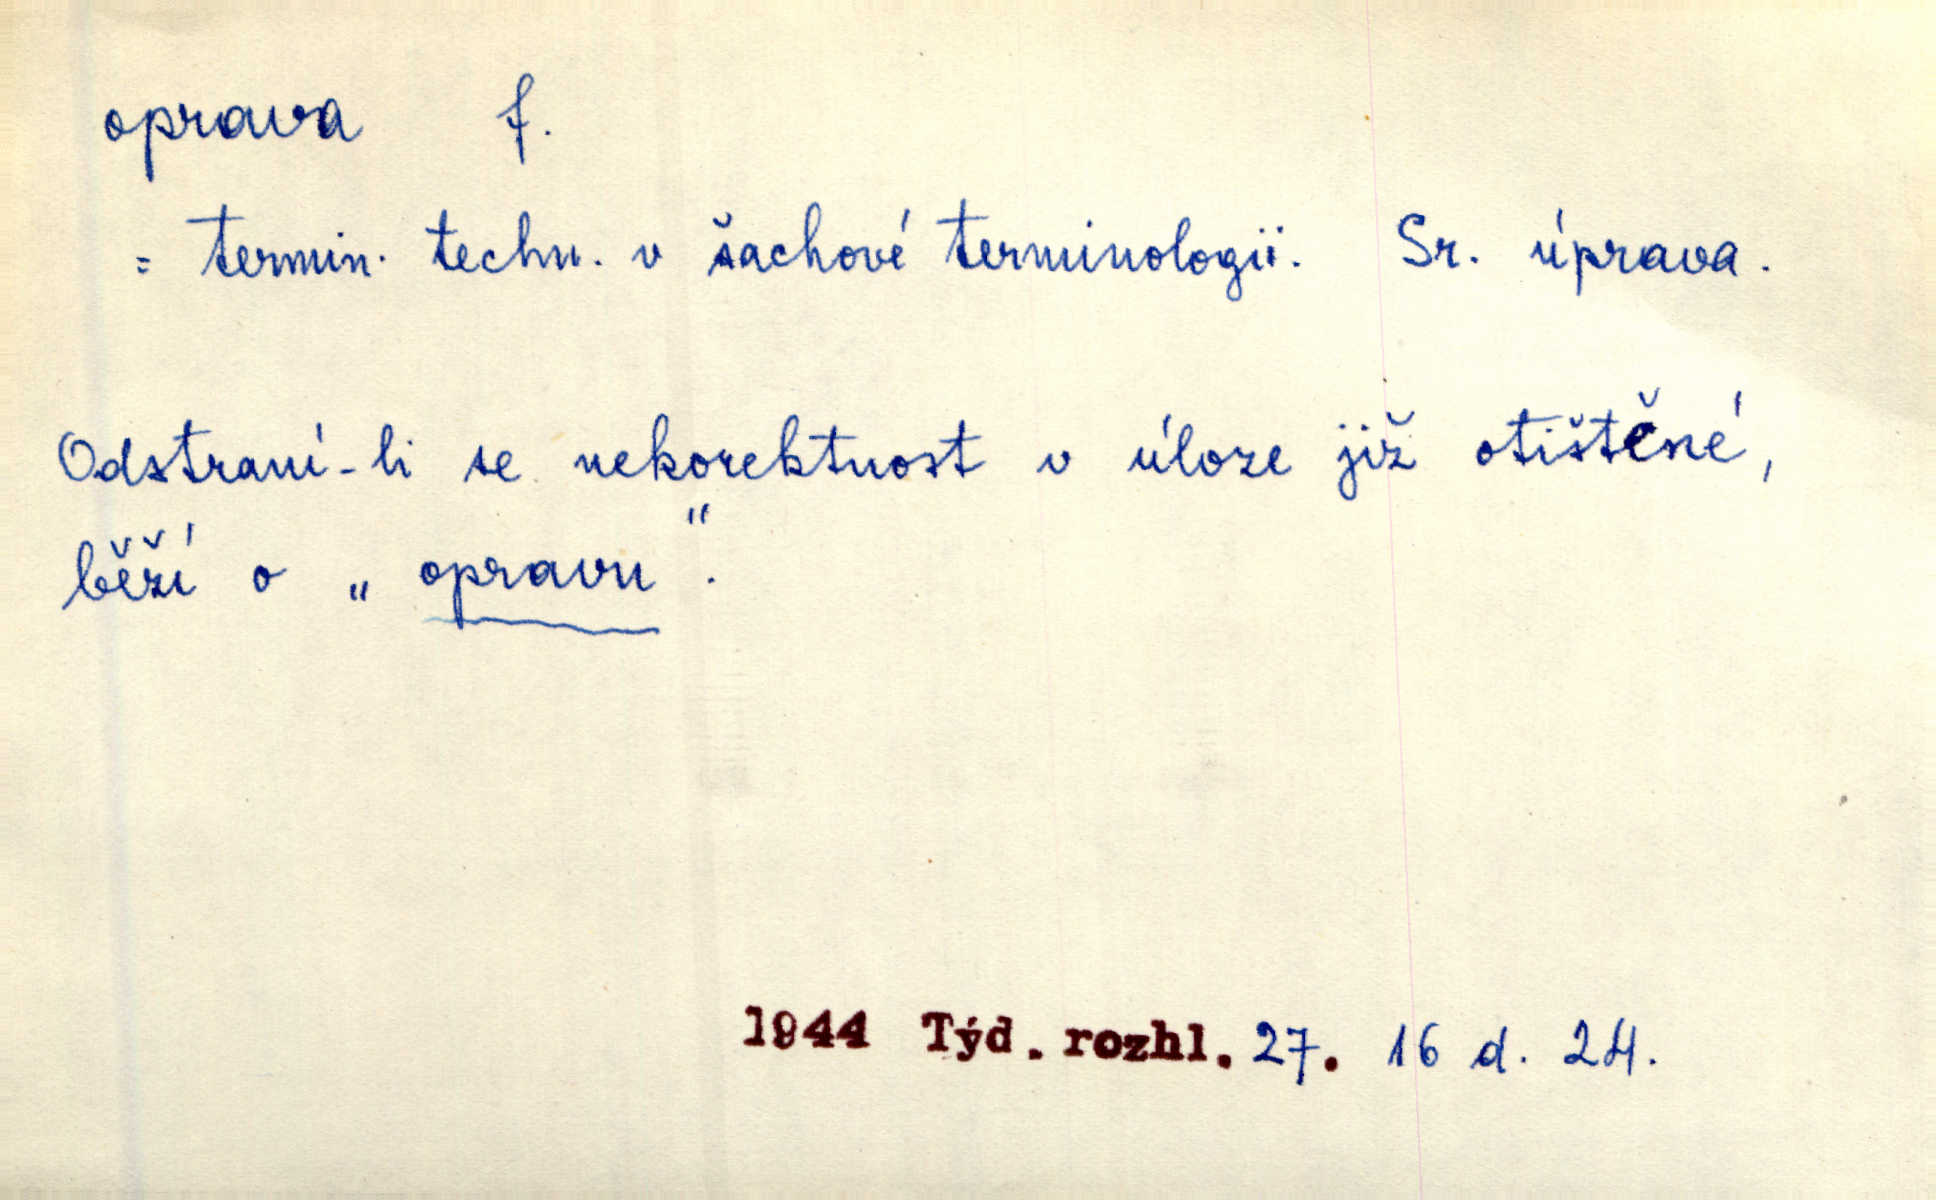 oprava f.
= termin. techn. v šachové terminologii. Sr. úprava.
Odstraní-li se nekorektnost v úloze již otištěné,
běží o „opravu“.
1944 Týd. rozhl. 27. 16 d. 24.